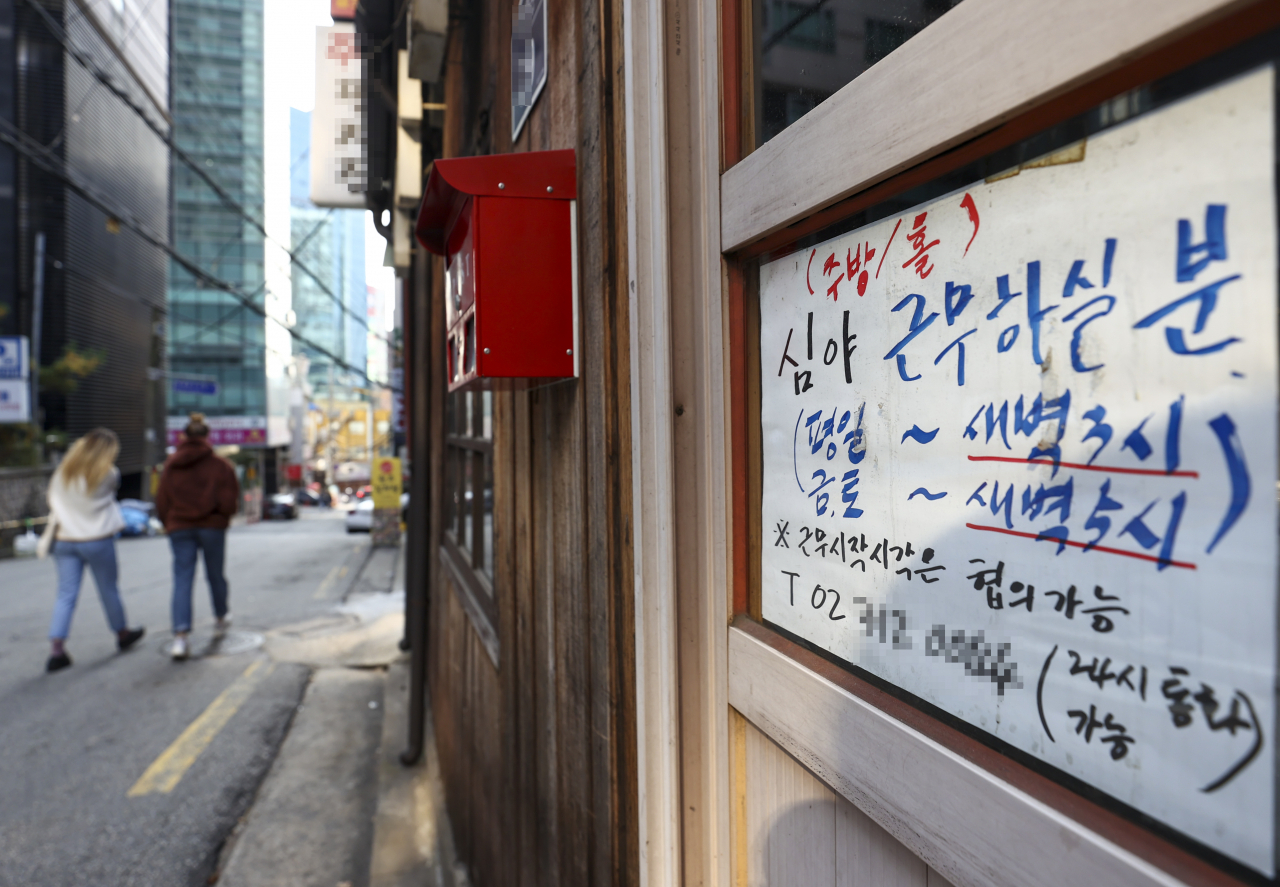 (주방/홀)
심야 근무하실 분.
(평일 ~ 새벽3시
금.토 ~ 새벽5시)
※ 근무시작시각은 협의가능
T 02
(24시 통화
가능)